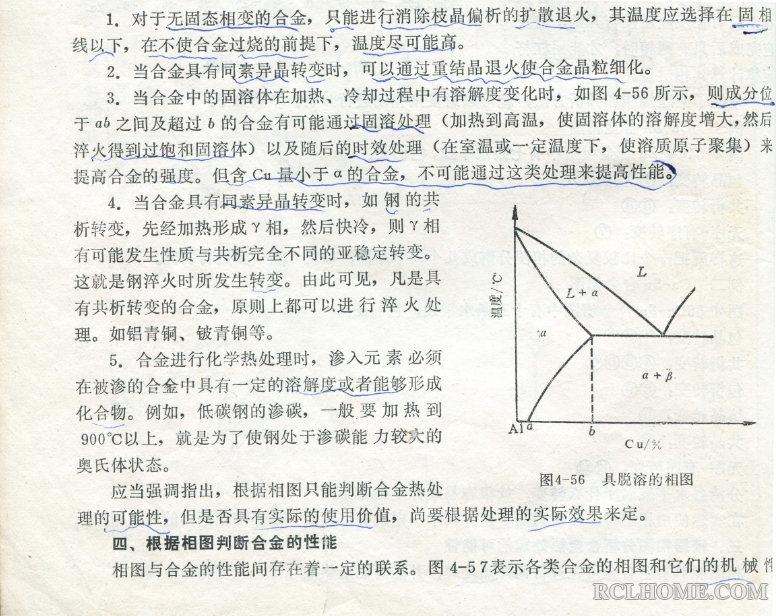 1. 对于无固态相变的合金，只能进行消除枝晶偏析的扩散退火，其温度应选择在固相
线以下，在不使合金过烧的前提下，温度尽可能高。
2. 当合金具有同素异晶转变时，可以通过重结晶退火使合金晶粒细化。
3. 当合金中的固溶体在加热、冷却过程中有溶解度变化时，如图 4-56 所示，则成分位
于 ab 之间及超过 b 的合金有可能通过固溶处理（加热到高温，使固溶体的溶解度增大，然后
淬火得到过饱和固溶体）以及随后的时效处理（在室温或一定温度下，使溶质原子聚集）来
提高合金的强度。但含 Cu 量小于 α 的合金，不可能通过这类处理来提高性能。
4. 当合金具有同素异晶转变时，如钢的共
析转变，先经加热形成 γ 相，然后快冷，则 γ 相
有可能发生性质与共析完全不同的亚稳定转变。
这就是钢淬火时所发生转变。由此可见，凡是具
有共析转变的合金，原则上都可以进行淬火处
理。如铝青铜、铍青铜等。
5. 合金进行化学热处理时，渗入元素必须
在被渗的合金中具有一定的溶解度或者能够形成
化合物。例如，低碳钢的渗碳，一般要加热到
900℃以上，就是为了使钢处于渗碳能力较大的
奥氏体状态。
应当强调指出，根据相图只能判断合金热处
理的可能性，但是否具有实际的使用价值，尚要根据处理的实际效果来定。
温度/℃
L
L + α
α
α + β
Al a b
Cu/%
图4-56 具脱溶的相图
四、根据相图判断合金的性能
相图与合金的性能间存在着一定的联系。图 4-57表示各类合金的相图和它们的机械性
RCLHOME.COM